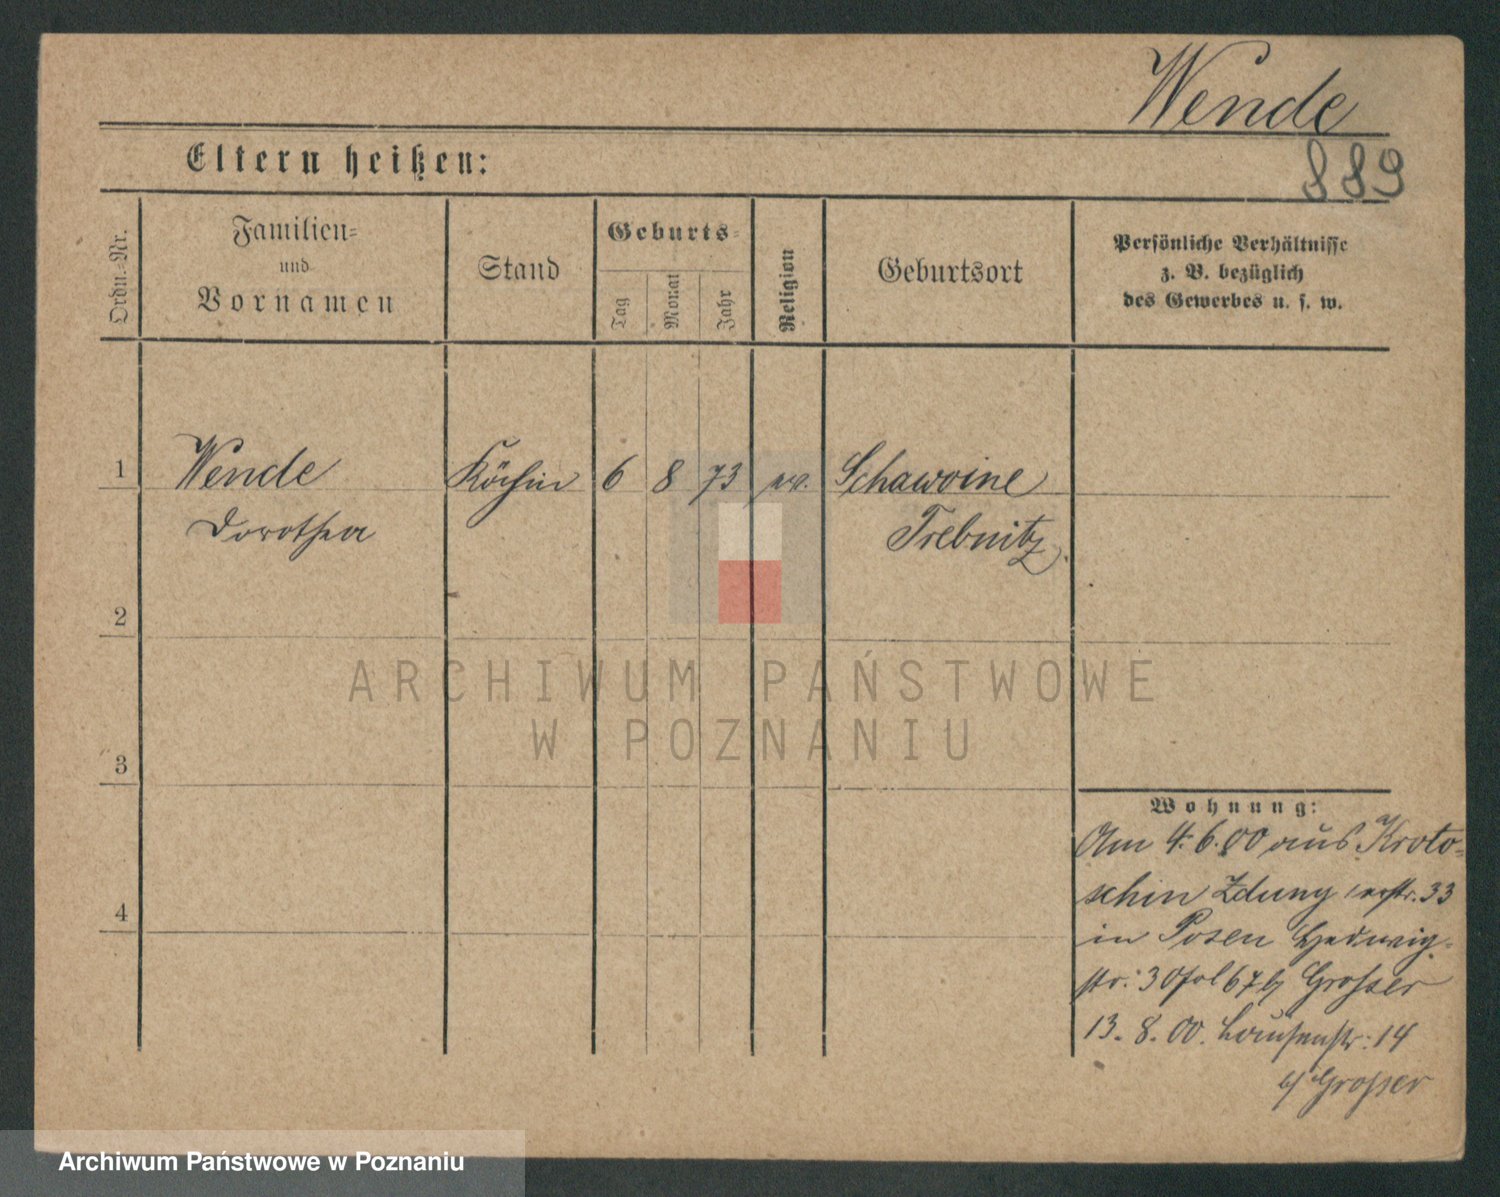 Wende
Eltern heißen:
889
Ordn.=Nr.
Familien=
und
Vornamen
Stand
Geburts=
Tag
Monat
Jahr
Religion
Geburtsort
Persönliche Verhältnisse
z. B. bezüglich
des Gewerbes u. s. w.
1
Wende
Köchin
6
8
73
ev.
Schawoine
Dorothea
Trebnitz
2
ARCHIWUM PAŃSTWOWE
W POZNANIU
3
Wohnung:
Am 4.6.00 aus Kroto-
schin Zduny 33
4
in Posen Hedwig-
str: 30 Grosser
13. 8. 00. Louisenstr: 14
b/ Grosser
Archiwum Państwowe w Poznaniu